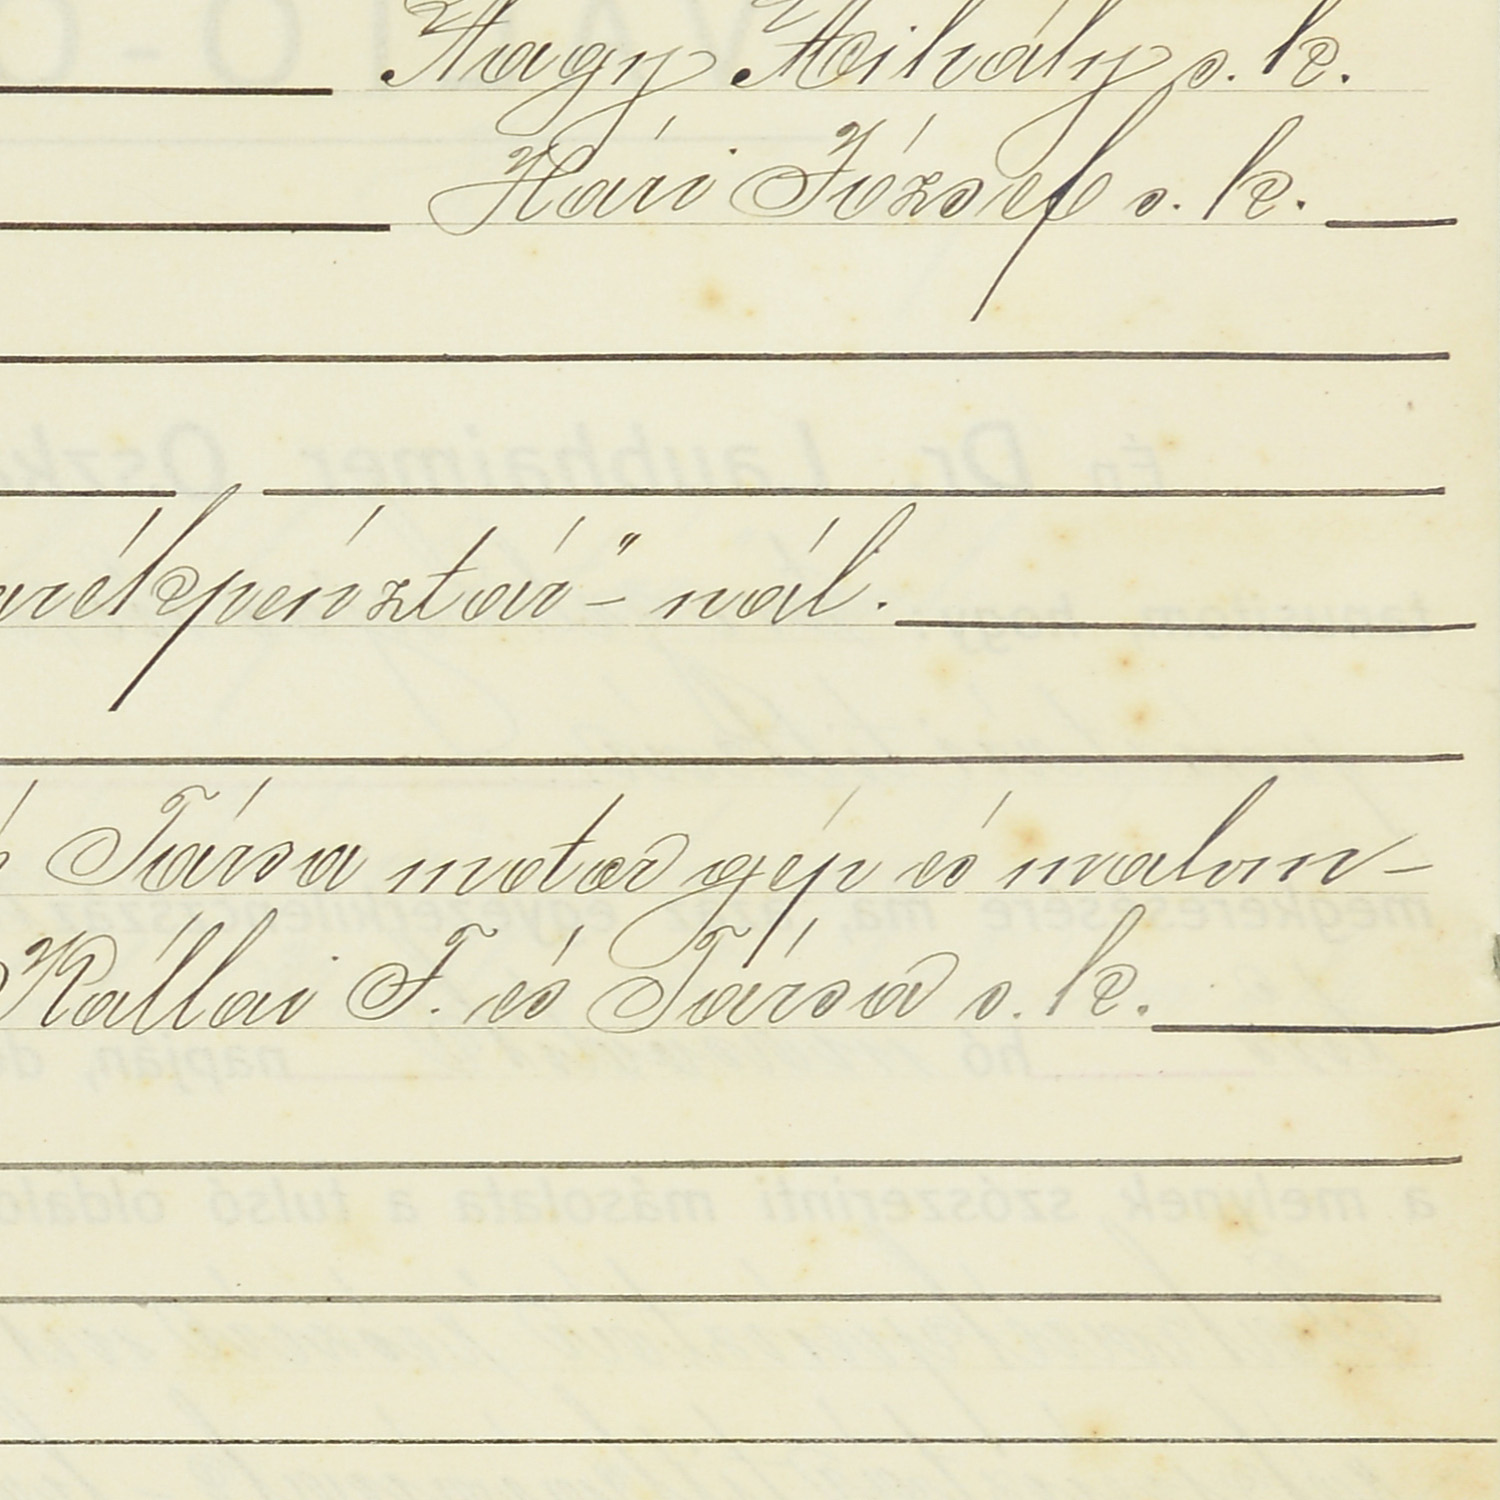 Nagy Mihály s. k.
Hári József s. k.
arékpénztár"- nál.
Társa motor gép és malom-
Kállai F. és Társa s. k.